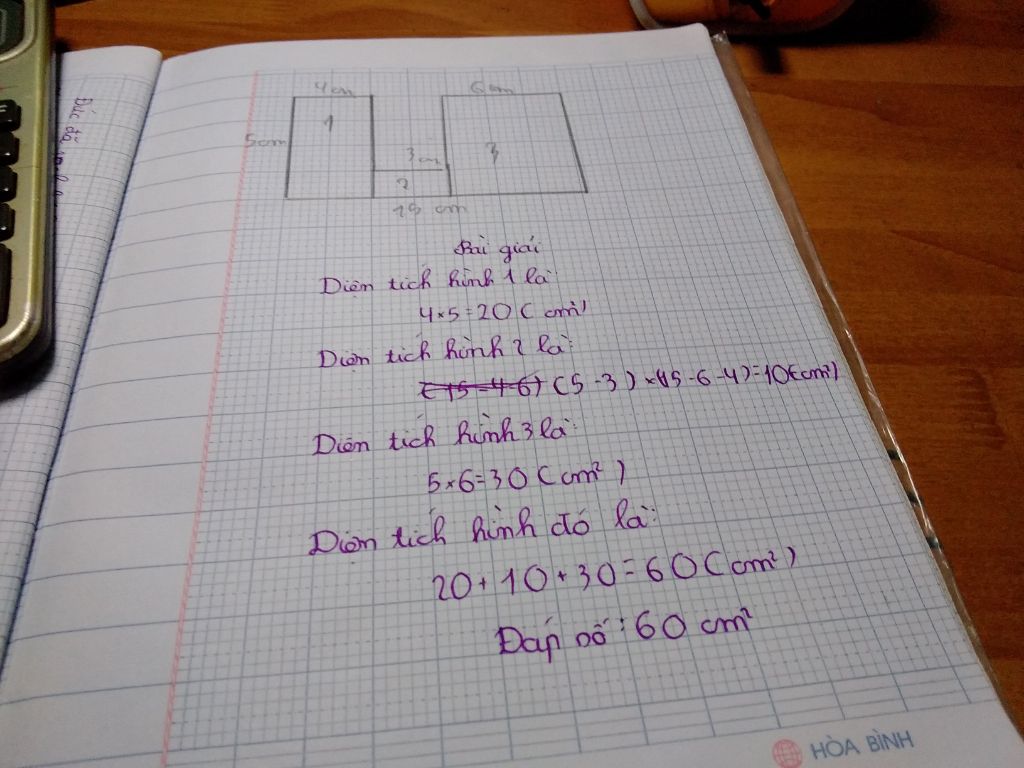 4cm
6cm
1
5cm
3cm
3
2
15 cm
Bài giải
Diện tích hình 1 là:
4×5=20(cm²)
Diện tích hình 2 là:
(15-4-6) (5-3)×(15-6-4)=10(cm²)
Diện tích hình 3 là:
5×6=30(cm²)
Diện tích hình đó là:
20+10+30=60(cm²)
Đáp số: 60 cm²
HÒA BÌNH